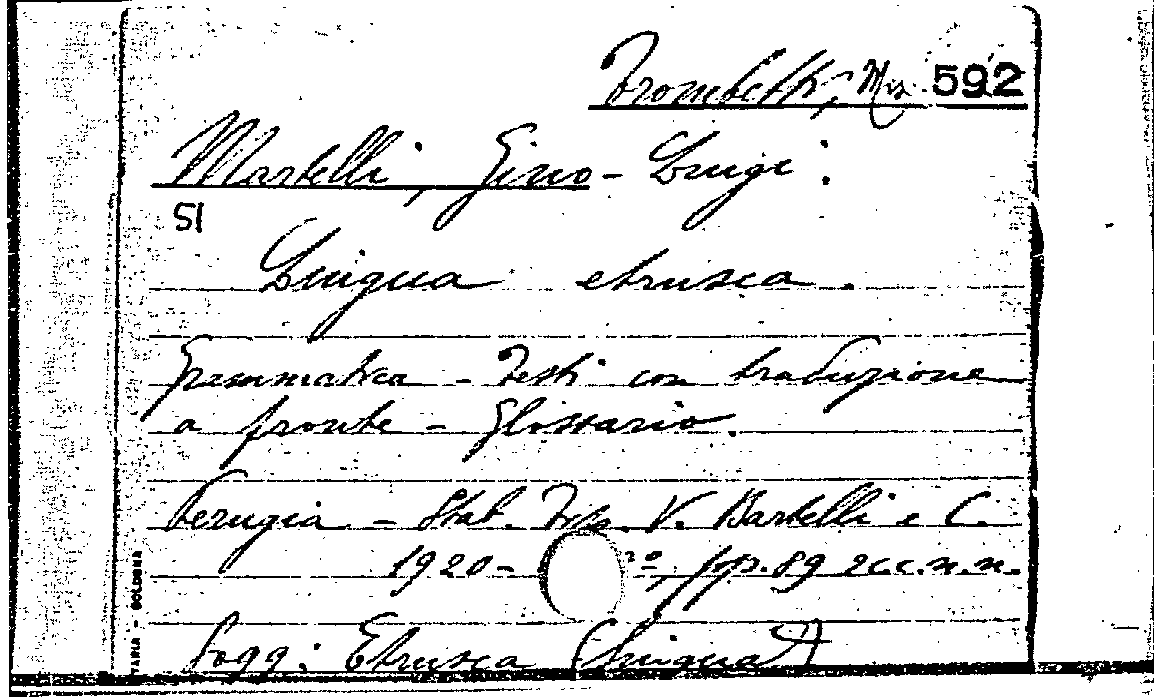 Trombetti, Mis. 592
Martelli, Gino-Luigi.
51
Lingua etrusca.
Grammatica - Testi con traduzione
a fronte - Glossario.
Perugia - Stab. Tip. V. Bartelli e C.
1920- º, pp. 89 2 c.c.n.n.
Sogg: Etrusca (lingua)
BOLOGNA